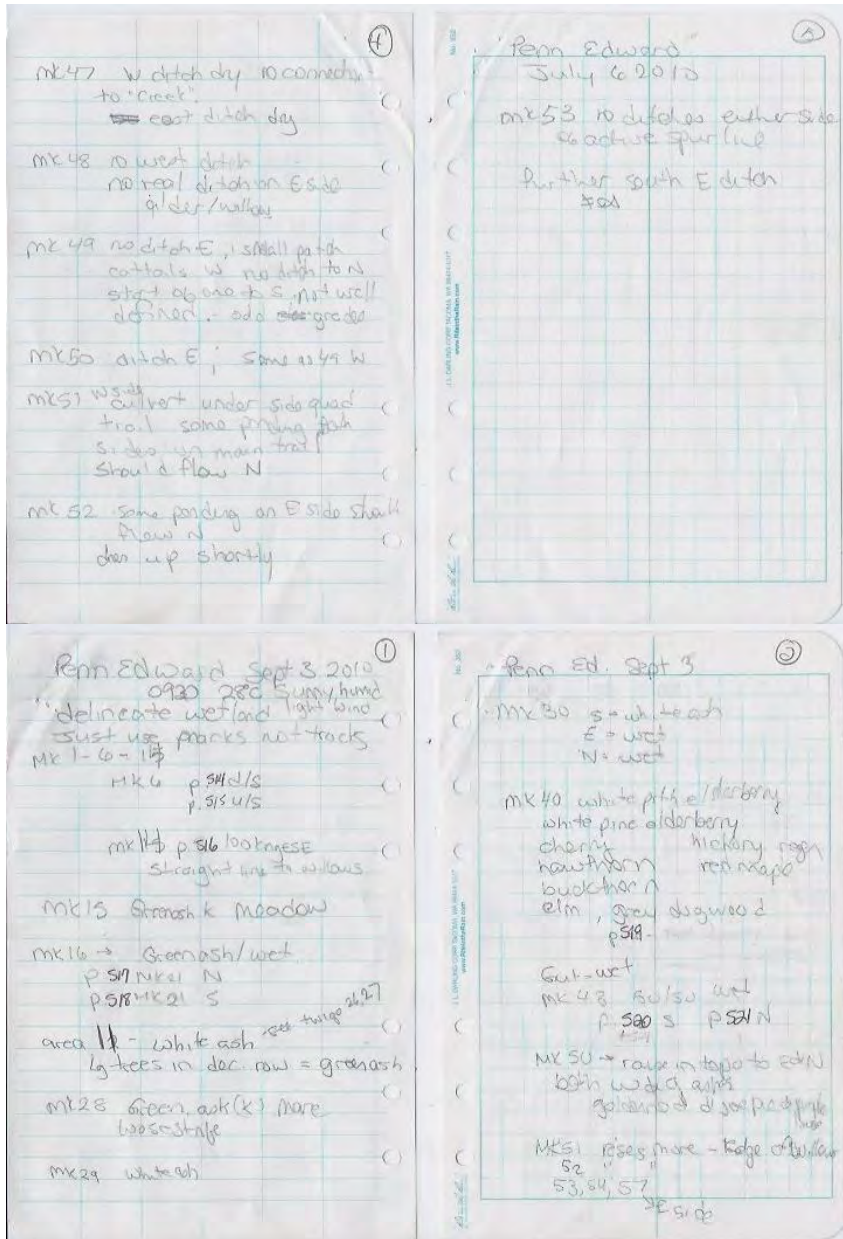 4
mk47 W ditch dry no connection
to "creek".
east ditch dry
mk48 no west ditch
no real ditch on E side
alder/willow
mk 49 no ditch E, 1 small patch
cattails W no ditch to N
start of one to S, not well
defined - odd grades
mk50 ditch E, same as 49 W
mk51 W side culvert under side quad
trail some ponding both
sides on main trail
should flow N
mk 52 some ponding on E side
flow N
dries up shortly
5
Penn Edward
July 6 2010
mk53 no ditches either side
of active spur line
further south E ditch
J.L. DARLING CORP TACOMA, WA
www.RiteintheRain.com
1
Penn Edward Sept 3 2010
0930 28c Sunny, humid
light wind
delineate wetland
Just use marks not tracks
MK 1-6-
MK6 p 514 d/s
p. 515 u/s
mk p 516 looking SE
straight line to willows
mk15 Greenash k meadow
mk16 → Greenash/wet
p 517 MK21 N
p 518 MK21 S
area - white ash twigs 26,27
lg trees in doc. row = greenash
mk28 Green ash (k) more
mk29 white ash
2
Penn Ed. Sept 3
MK30 S = white ash
E = wet
N = wet
mk40 white pith elderberry
white pine elderberry
cherry hickory
hawthorn
buckthorn
elm, grey dogwood
p519-
wet
MK 48 50/50 wet
p. 520 S p521 N
MK50 → in topo to
both
goldenrod
MK51 rises more - edge of willow
52 " "
53, 54, 57
E side